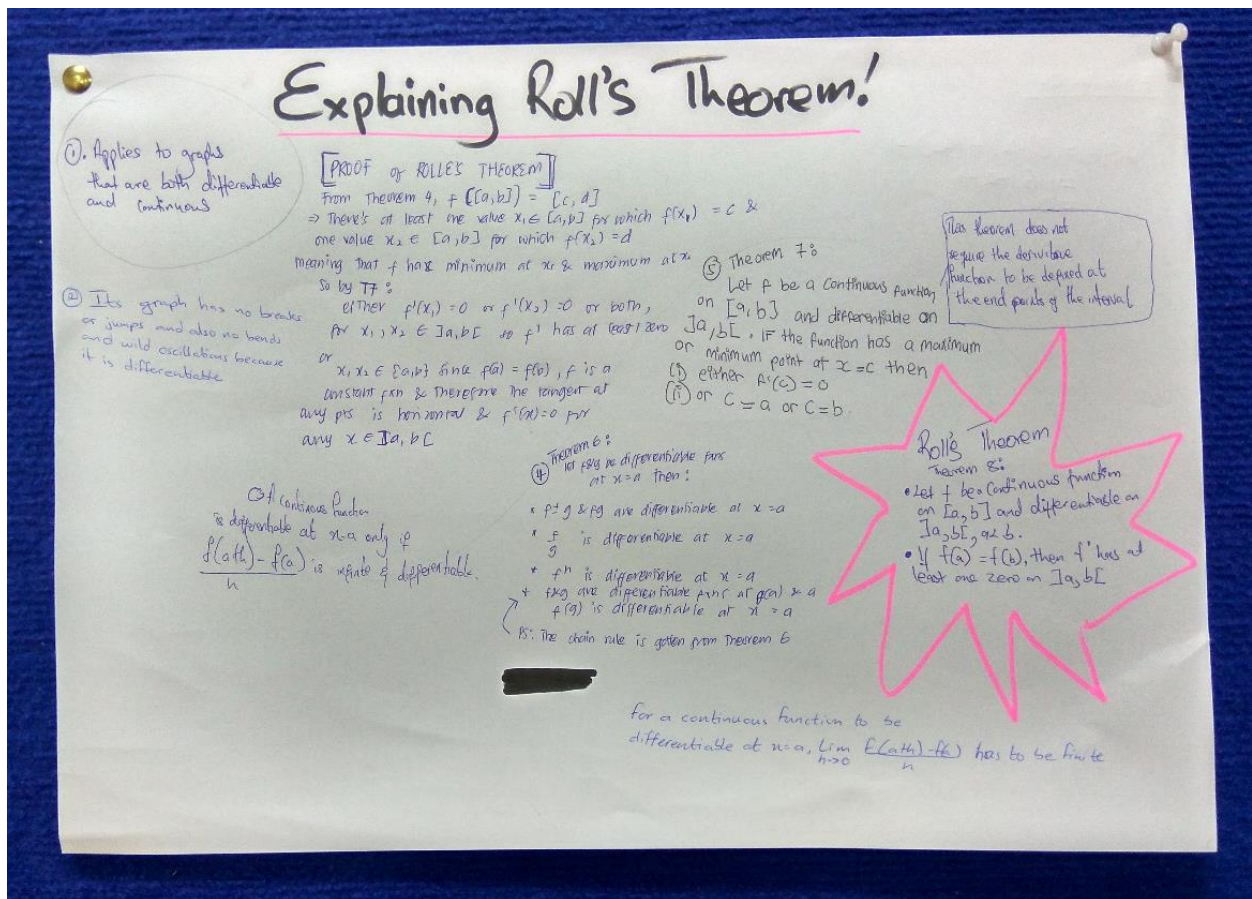 Explaining Roll's Theorem!
①. Applies to graphs
that are both differentiable
and continuous
② Its graph has no breaks
or jumps and also no bends
and wild oscillations because
it is differentiable
[PROOF of ROLLE'S THEOREM]
From Theorem 4, f([a,b]) = [c,d]
⇒ There's at least one value x₁ ∈ [a,b] for which f(x₁) = c &
one value x₂ ∈ [a,b] for which f(x₂) = d
meaning that f has minimum at x₁ & maximum at x₂
so by T7:
either f'(x₁) = 0 or f'(x₂) = 0 or both,
for x₁, x₂ ∈ ]a,b[ so f' has at least 1 zero
or
x₁ x₂ ∈ {a,b} since f(a) = f(b), f is a
constant fxn & therefore the tangent at
any pts is horizontal & f'(x)=0 for
any x ∈ ]a,b[
③ A continuous function
is differentiable at x=a only if
f(a+h) - f(a) is &
h
differentiable.
④ Theorem 6:
let f&g be differentiable fxns
at x=a then:
* f±g & fg are differentiable at x=a
* f is differentiable at x=a
g
* fⁿ is differentiable at x=a
* f&g are differentiable fxns at g(a) & a
f(g) is differentiable at x = a
PS: The chain rule is gotten from Theorem 6
⑤ Theorem 7:
Let f be a continuous function
on [a,b] and differentiable on
]a,b[. IF the function has a maximum
or minimum point at x=c then
(i) either f'(c)=0
(ii) or C=a or C=b.
This theorem does not
require the derivative
function to be defined at
the end points of the interval
Roll's Theorem
Theorem 8:
• Let f be a continuous function
on [a,b] and differentiable on
]a,b[, a<b.
• If f(a) = f(b), then f' has at
least one zero on ]a,b[
for a continuous function to be
differentiable at x=a, Lim f(a+h)-f(a) has to be finite
h→0 h